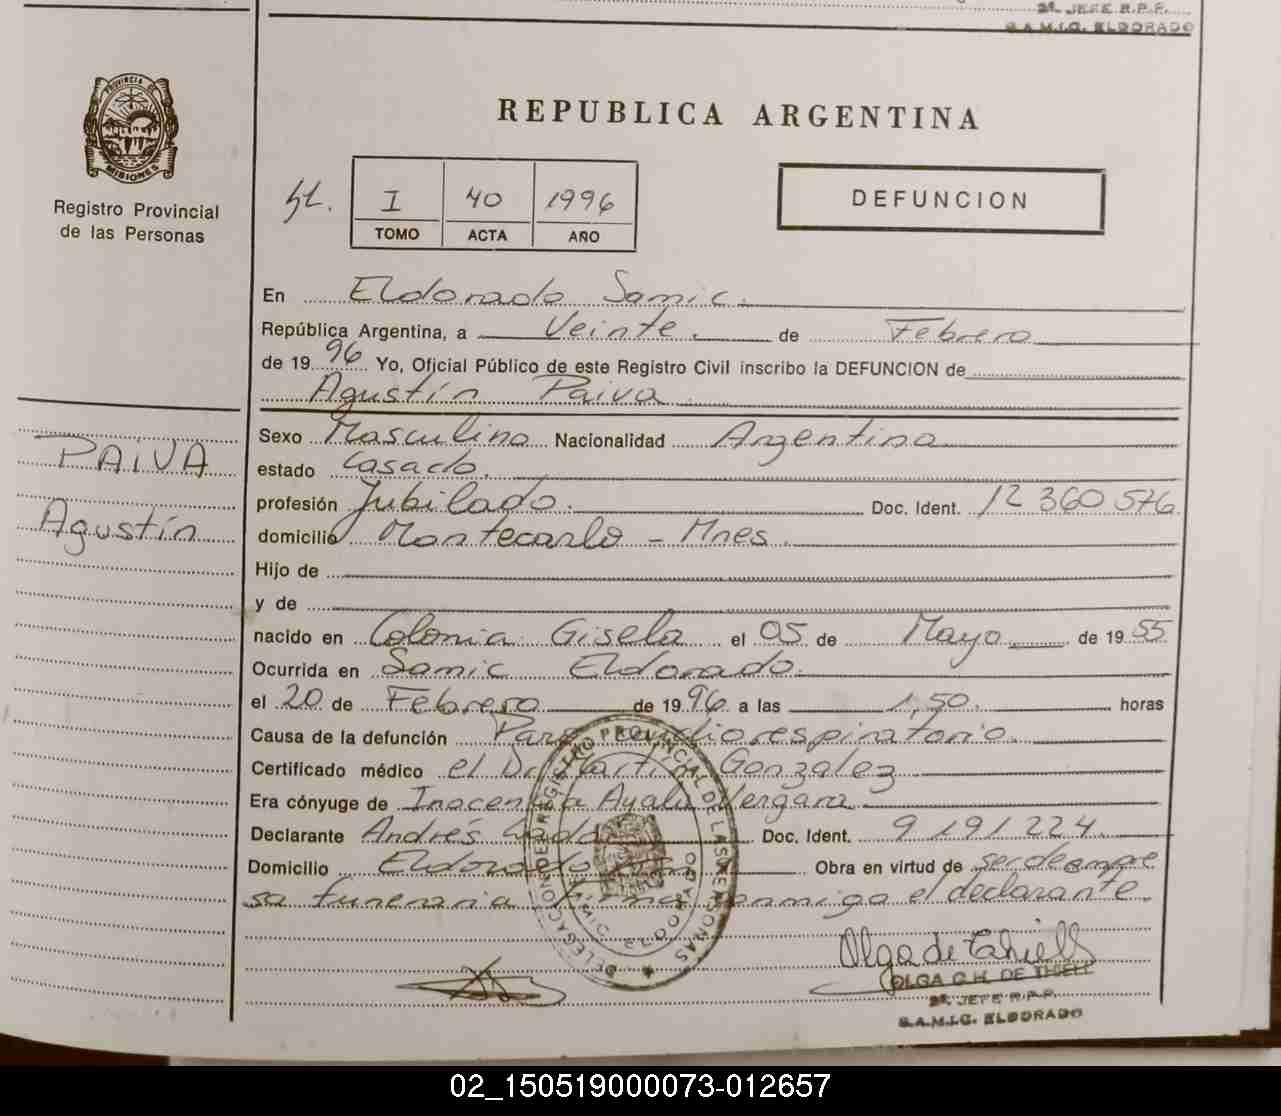 2º JEFE R.P.P.
S.A.M.I.C. ELDORADO
PROVINCIA DE
MISIONES
Registro Provincial
de las Personas
REPUBLICA ARGENTINA
I 40 1996
TOMO ACTA AÑO
DEFUNCION
En Eldorado Samic.
República Argentina, a Veinte. de Febrero
de 1996 Yo, Oficial Público de este Registro Civil inscribo la DEFUNCION de
Agustín Paiva
Sexo Masculino Nacionalidad Argentina
estado Casado.
PAIVA
profesión Jubilado. Doc. Ident. 12 360 576
Agustín
domicilio Montecarlo - Mnes.
Hijo de
y de
nacido en Colonia Gisela el 05 de Mayo de 1955
Ocurrida en Samic Eldorado.
el 20 de Febrero de 1996 a las 1,50. horas
Causa de la defunción Paro cardiorespiratorio.
Certificado médico el Dr. Martin Gonzalez
Era cónyuge de Inocencia Ayala Vergara
Declarante Andrés Doc. Ident. 9 191 224.
Domicilio Eldorado Obra en virtud de ser de empre
sa funeraria firma conmigo el declarante
DELEGACION DE REGISTRO PROVINCIAL DE LAS PERSONAS
ELDORADO
Olga de Thiell
OLGA G.H. DE THIELL
2º JEFE R.P.P.
S.A.M.I.C. ELDORADO
02_150519000073-012657